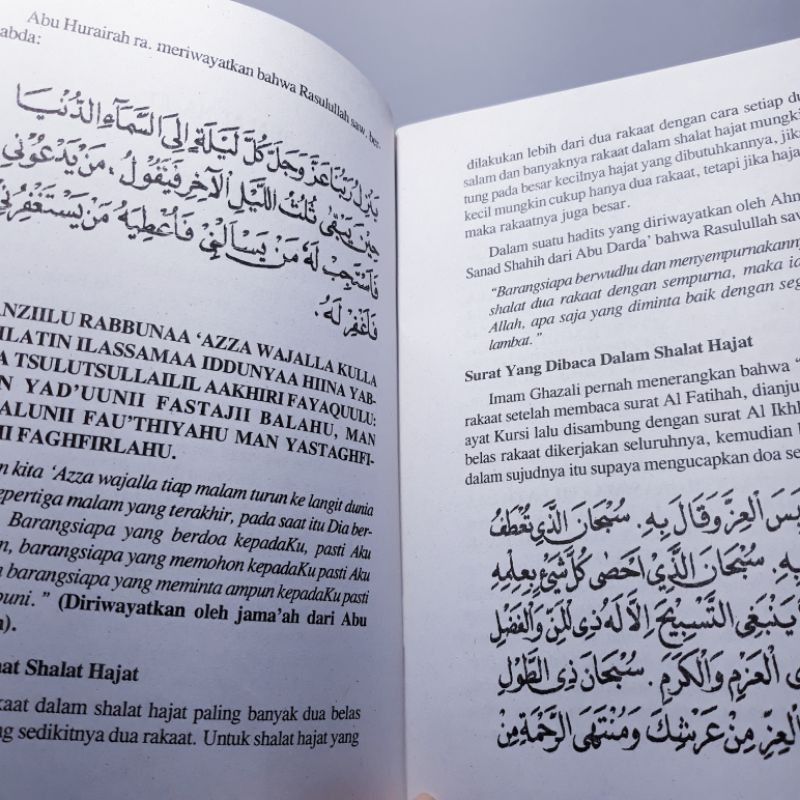 Abu Hurairah ra. meriwayatkan bahwa Rasulullah saw. ber-
abda:
يَنْزِلُ رَبُّنَا عَزَّ وَجَلَّ كُلَّ لَيْلَةٍ إِلَى السَّمَآءِ الدُّنْيَا
حِيْنَ يَبْقَى ثُلُثُ اللَّيْلِ الْآخِرِ فَيَقُوْلُ ، مَنْ يَدْعُوْنِي
فَأَسْتَجِبْ لَهُ مَنْ يَسْأَلُنِي فَأُعْطِيَهُ مَنْ يَسْتَغْفِرُنِي
فَأَغْفِرْ لَهُ .
ANZIILU RABBUNAA ‘AZZA WAJALLA KULLA
ILATIN ILASSAMAA IDDUNYAA HIINA YAB-
A TSULUTSULLAILIL AAKHIRI FAYAQUULU:
N YAD’UUNII FASTAJII BALAHU, MAN
ALUNII FAU’THIYAHU MAN YASTAGHFI-
MI FAGHFIRLAHU.
n kita ‘Azza wajalla tiap malam turun ke langit dunia
epertiga malam yang terakhir, pada saat itu Dia ber-
Barangsiapa yang berdoa kepadaKu, pasti Aku
n, barangsiapa yang memohon kepadaKu pasti Aku
n barangsiapa yang meminta ampun kepadaKu pasti
puni.” (Diriwayatkan oleh jama’ah dari Abu
h).
aat Shalat Hajat
kaat dalam shalat hajat paling banyak dua belas
ng sedikitnya dua rakaat. Untuk shalat hajat yang
dilakukan lebih dari dua rakaat dengan cara setiap du
salam dan banyaknya rakaat dalam shalat hajat mungki
tung pada besar kecilnya hajat yang dibutuhkannya, jika
kecil mungkin cukup hanya dua rakaat, tetapi jika haja
maka rakaatnya juga besar.
Dalam suatu hadits yang diriwayatkan oleh Ahm
Sanad Shahih dari Abu Darda’ bahwa Rasulullah saw
“Barangsiapa berwudhu dan menyempurnakanny
shalat dua rakaat dengan sempurna, maka ia
Allah, apa saja yang diminta baik dengan seg
lambat.”
Surat Yang Dibaca Dalam Shalat Hajat
Imam Ghazali pernah menerangkan bahwa “
rakaat setelah membaca surat Al Fatihah, dianju
ayat Kursi lalu disambung dengan surat Al Ikhl
belas rakaat dikerjakan seluruhnya, kemudian
dalam sujudnya itu supaya mengucapkan doa se
بِسَ الْعِزَّ وَقَالَ بِهِ . سُبْحَانَ الَّذِي تَعَطَّفَ
بِهِ . سُبْحَانَ الَّذِيْ اَحْصَى كُلَّ شَيْءٍ بِعِلْمِهِ
يَنْبَغِى التَّسْبِيْحُ اِلَّا لَهُ ذِى الْمَنِّ وَالْفَضْلِ
ى الْعَزْمِ وَالْكَرَمِ . سُبْحَانَ ذِى الطَّوْلِ
الْعِزِّ مِنْ عَرْشِكَ وَمُنْتَهَى الرَّحْمَةِ مِنْ